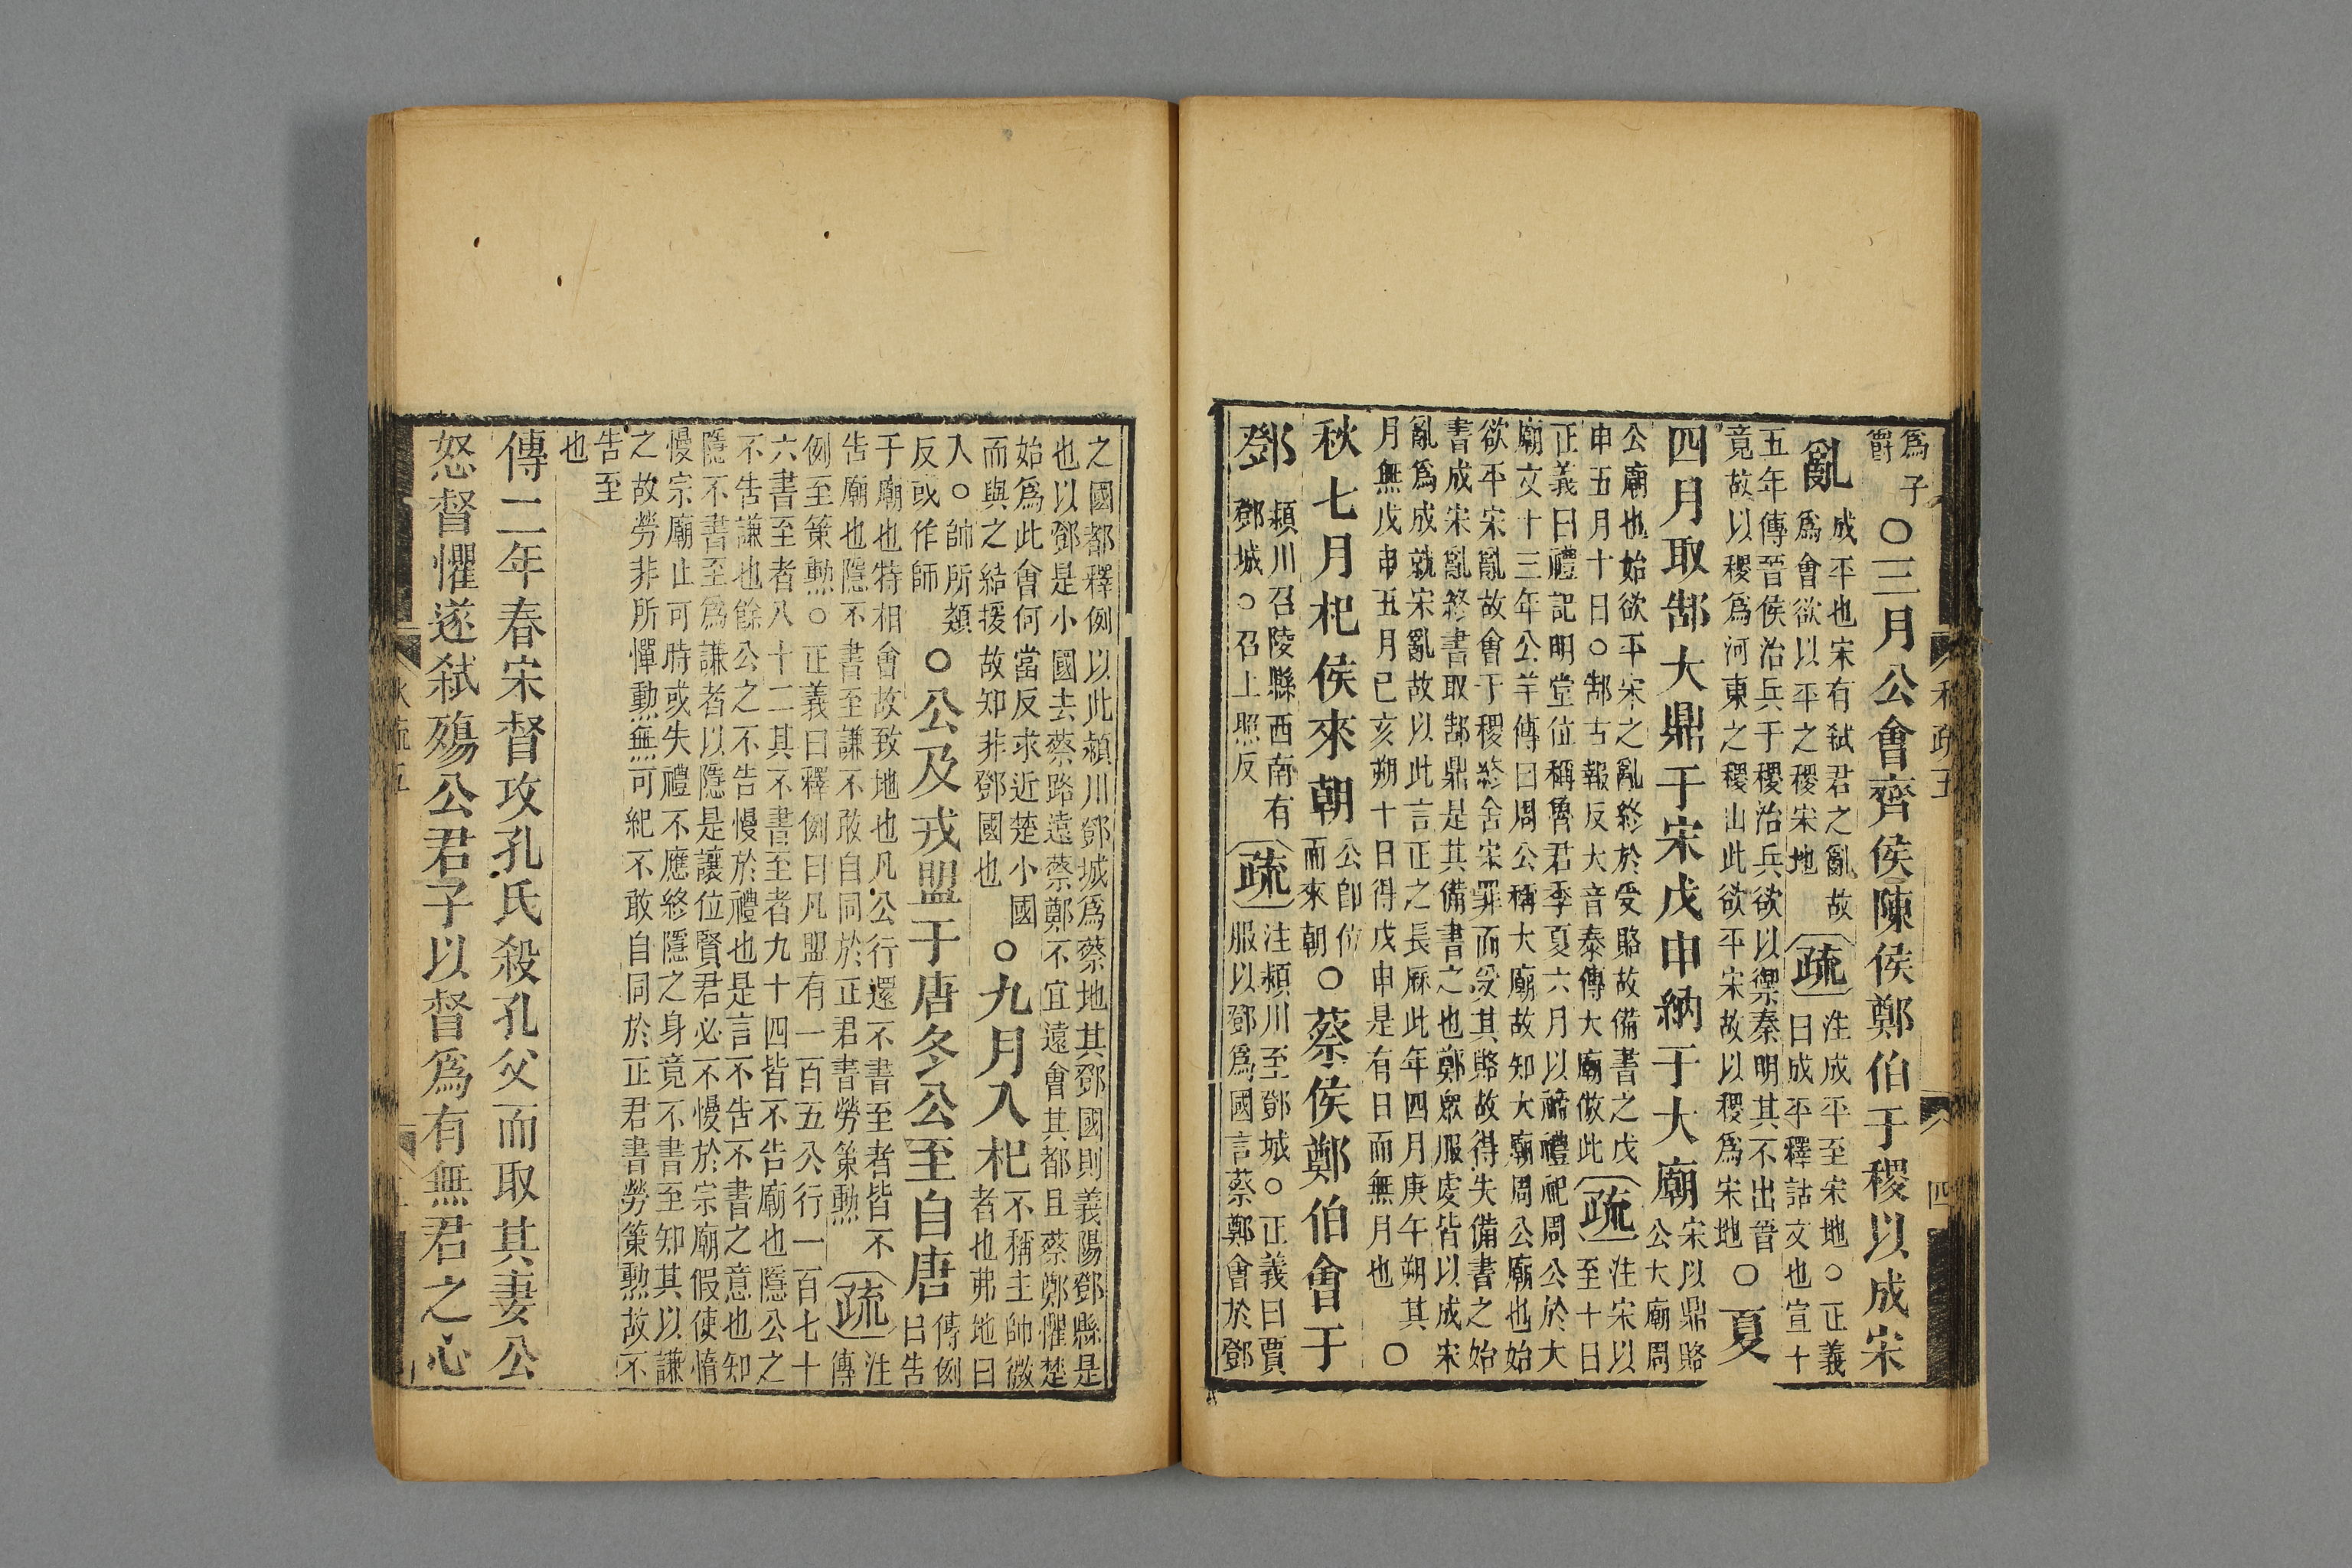 爲子爵○三月公會齊侯陳侯鄭伯于稷以成宋
亂成平也宋有弑君之亂故爲會欲以平之稷宋地疏注成平至宋地○正義曰成平釋詁文也宣十
五年傳晉侯治兵于稷治兵欲以禦秦明其不出晉
竟故以稷爲河東之稷山此欲平宋故以稷爲宋地○夏
四月取郜大鼎于宋戊申納于大廟宋以鼎賂公大廟周
公廟也始欲平宋之亂終於受賂故備書之戊
申五月十日○郜古報反大音泰傳大廟倣此疏注宋以至十日
正義曰禮記明堂位稱魯君季夏六月以禘禮祀周公於大
廟文十三年公羊傳曰周公稱大廟故知大廟周公廟也始
欲平宋亂故會于稷終舍宋罪而受其賂故得失備書之始
書成宋亂終書取郜鼎是其備書之也鄭眾服虔皆以成宋
亂爲成就宋亂故以此言正之長厤此年四月庚午朔其
月無戊申五月己亥朔十日得戊申是有日而無月也○
秋七月杞侯來朝公卽位而來朝○蔡侯鄭伯會于
鄧潁川召陵縣西南有鄧城○召上照反疏注潁川至鄧城○正義曰賈服以鄧爲國言蔡鄭會於鄧
之國都釋例以此潁川鄧城爲蔡地其鄧國則義陽鄧縣是
也以鄧是小國去蔡路遠蔡鄭不宜遠會其都且蔡鄭懼楚
始爲此會何當反求近楚小國
而與之結援故知非鄧國也○九月入杞不稱主帥微者也弗地曰
入○帥所類反或作師○公及戎盟于唐冬公至自唐傳例曰告
于廟也特相會故致地也凡公行還不書至者皆不
告廟也隱不書至謙不敢自同於正君書勞策勲疏注傳
例至策勲○正義曰釋例曰凡盟有一百五公行一百七十
六書至者八十二其不書至者九十四皆不告廟也隱公之
不告謙也餘公之不告慢於禮也是言不告不書之意也知
隱不書至爲謙者以隱是讓位賢君必不慢於宗廟假使惰
慢宗廟止可時或失禮不應終隱之身竟不書至知其以謙
之故勞非所憚勲無可紀不敢自同於正君書勞策勲故不
告至
也
傳二年春宋督攻孔氏殺孔父而取其妻公
怒督懼遂弑殤公君子以督爲有無君之心
秋疏五
四